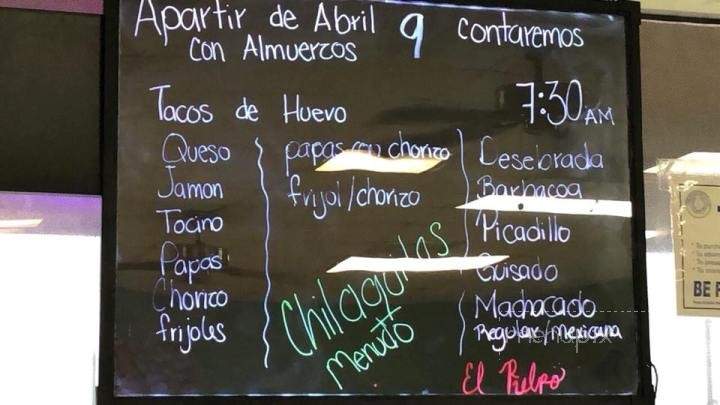 Apartir de Abril 9 contaremos
con Almuercos
7:30 AM
Tacos de Huevo
Queso
Jamon
Tocino
Papas
Chorizo
frijoles
papas con chorizo
frijol/chorizo
Chilaquilas
Menudo
Desebrada
Barbacoa
Picadillo
Guisado
Machacado
Regular/Mexicana
El Pulpo
menupix
BE